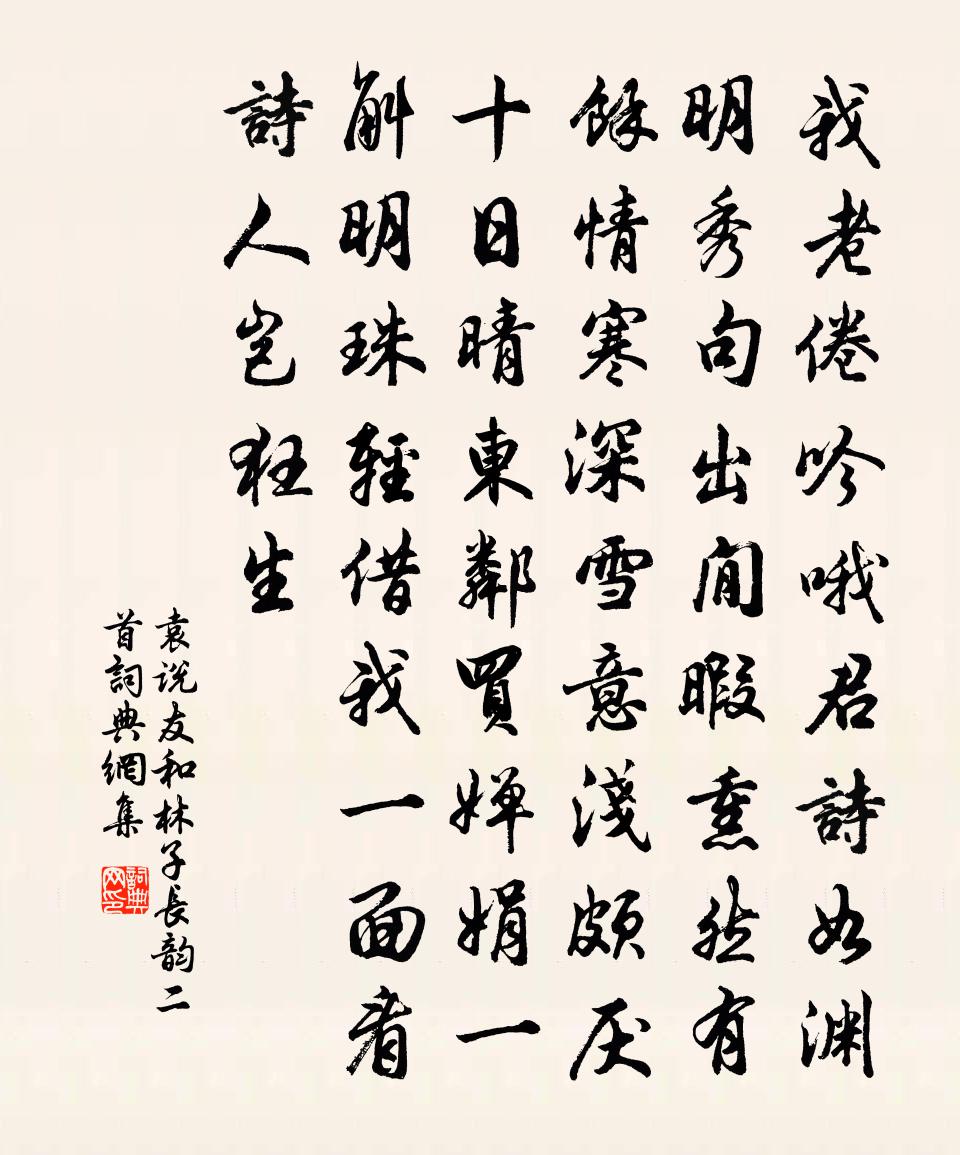 我老倦吟哦君詩如渊
明秀句出閒暇熏然有
餘情寒深雪意淺頗厌
十日晴東鄰買嬋娟一
斛明珠輕借我一面看
詩人岂狂生
袁说友和林子長韵二
首詞典網集
詞典网印